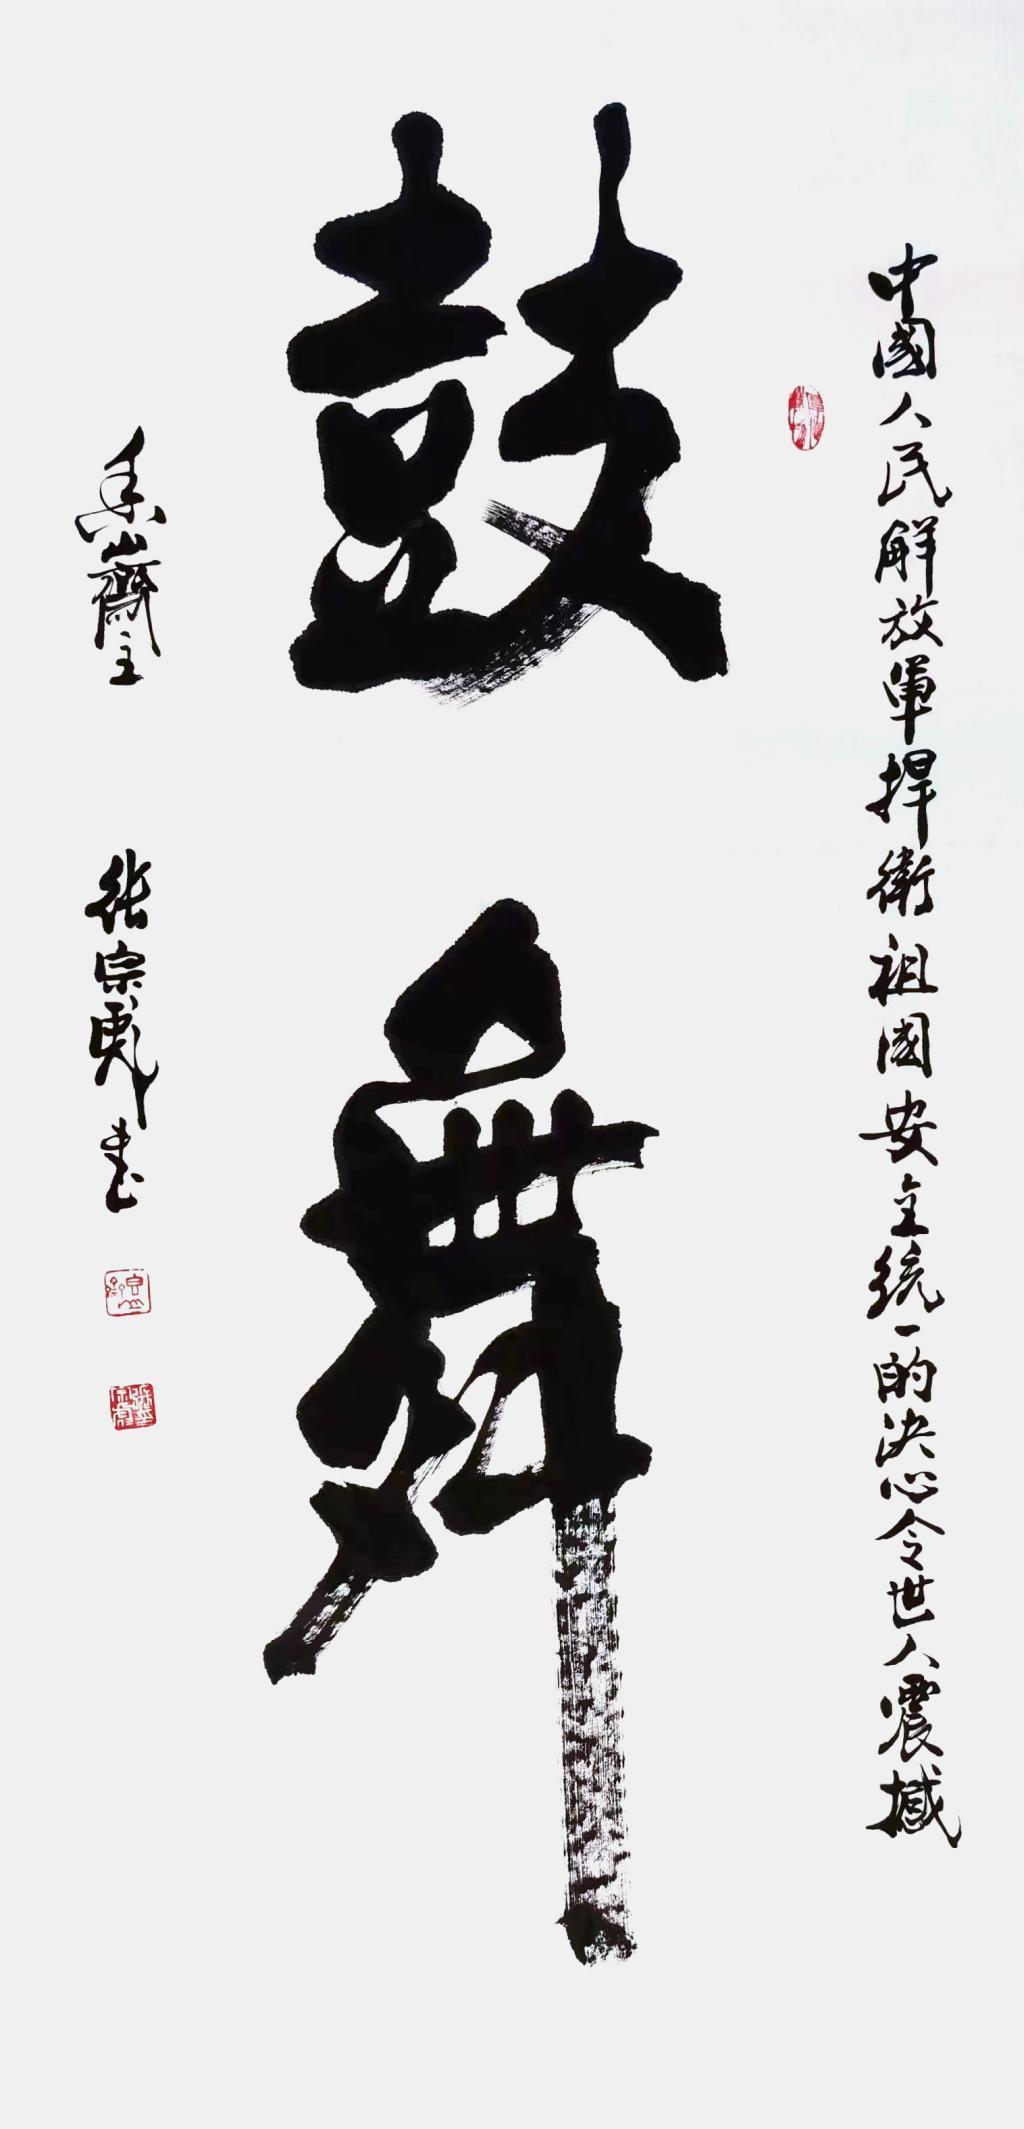 中國人民解放軍捍衛祖國安全統一的決心令世人震撼
鼓舞
香山齋主 張宗彪書